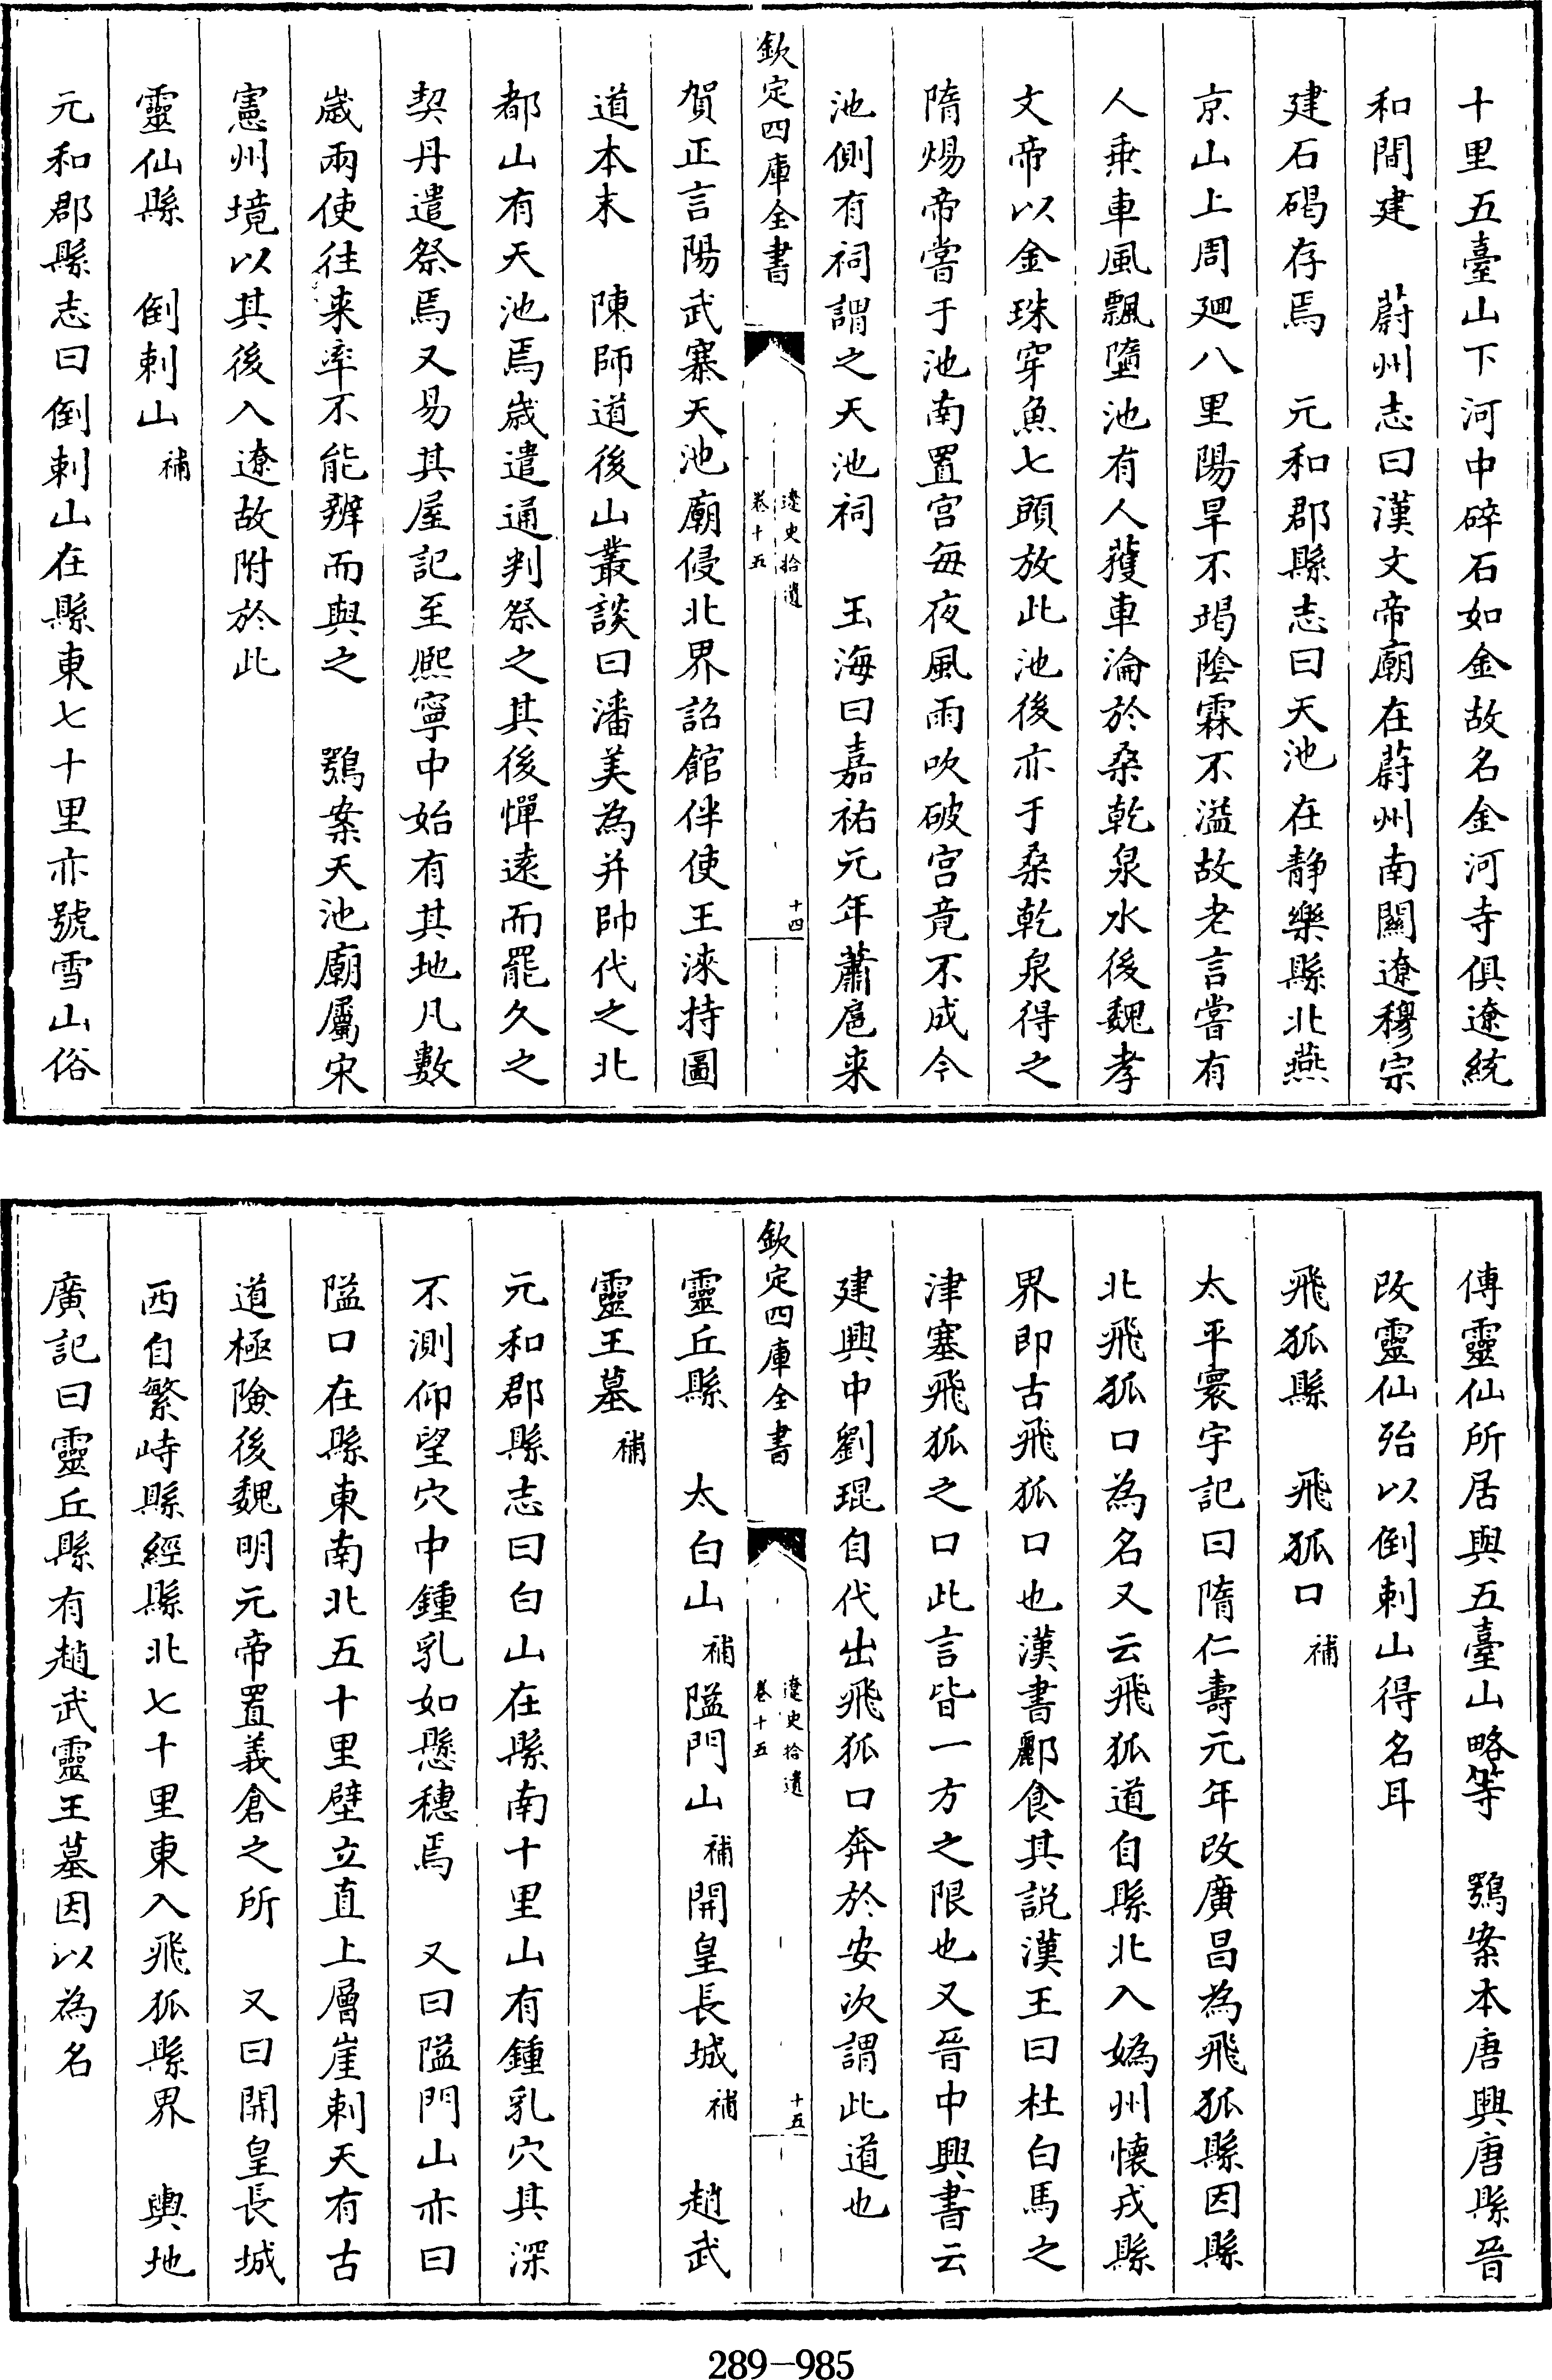 十里五臺山下河中碎石如金故名金河寺俱遼統
和間建　蔚州志曰漢文帝廟在蔚州南關遼穆宗
建石碣存焉　元和郡縣志曰天池在靜樂縣北燕
京山上周廻八里陽旱不竭陰霖不溢故老言嘗有
人乗車風飄墮池有人獲車淪於桑乾泉水後魏孝
文帝以金珠穿魚七頭放此池後亦于桑乾泉得之
隋煬帝嘗于池南置宫每夜風雨吹破宫竟不成今
池側有祠謂之天池祠　玉海曰嘉祐元年蕭扈来
欽定四庫全書
遼史拾遺
卷十五
十四
賀正言陽武寨天池廟侵北界詔館伴使王洙持圖
道本末　陳師道後山叢談曰潘美為并帥代之北
都山有天池焉歲遣通判祭之其後憚遠而罷久之
契丹遣祭焉又易其屋記至熈寧中始有其地凡數
歲兩使往来率不能辨而與之　鶚案天池廟屬宋
憲州境以其後入遼故附於此
靈仙縣　倒剌山補
元和郡縣志曰倒剌山在縣東七十里亦號雪山俗
傳靈仙所居與五臺山略等　鶚案本唐興唐縣晉
改靈仙殆以倒剌山得名耳
飛狐縣　飛狐口補
太平寰宇記曰隋仁壽元年改廣昌為飛狐縣因縣
北飛狐口為名又云飛狐道自縣北入媯州懷戎縣
界即古飛狐口也漢書酈食其説漢王曰杜白馬之
津塞飛狐之口此言皆一方之限也又晉中興書云
建興中劉琨自代出飛狐口奔於安次謂此道也
欽定四庫全書
遼史拾遺
卷十五
十五
靈丘縣　太白山補隘門山補開皇長城補　趙武
靈王墓補
元和郡縣志曰白山在縣南十里山有鍾乳穴其深
不測仰望穴中鍾乳如懸穗焉　又曰隘門山亦曰
隘口在縣東南北五十里壁立直上層崖刺天有古
道極險後魏明元帝置義倉之所　又曰開皇長城
西自繁峙縣經縣北七十里東入飛狐縣界　輿地
廣記曰靈丘縣有趙武靈王墓因以為名
289-985